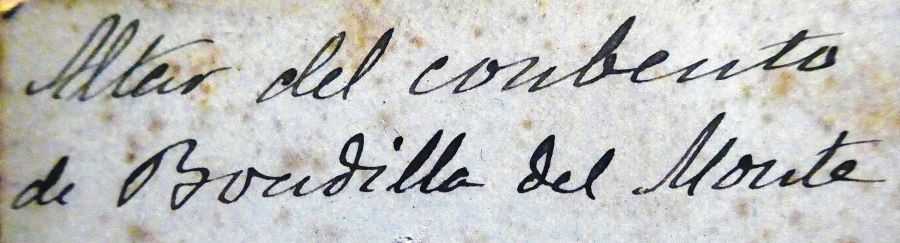 Altar del conbento
de Boudilla del Monte